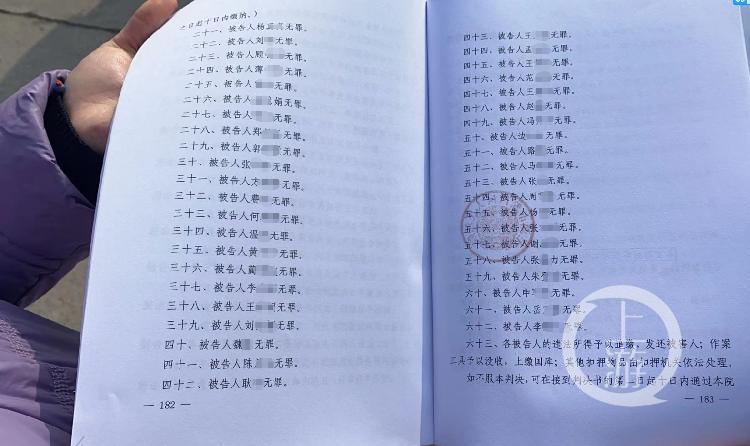 之日起十日内缴纳。）
二十一、被告人杨 无罪。
二十二、被告人刘 无罪。
二十三、被告人顾 无罪。
二十四、被告人薄 无罪。
二十五、被告人 无罪。
二十六、被告人 娟无罪。
二十七、被告人 无罪。
二十八、被告人郑 无罪。
二十九、被告人郭 无罪。
三十、被告人张 无罪。
三十一、被告人方 无罪。
三十二、被告人费 无罪。
三十三、被告人何 无罪。
三十四、被告人温 无罪。
三十五、被告人黄 无罪。
三十六、被告人蔺 无罪。
三十七、被告人李 无罪。
三十八、被告人王 无罪。
三十九、被告人刘 无罪。
四十、被告人魏 无罪。
四十一、被告人陈 无罪。
四十二、被告人耿 无罪。
— 182 —
四十三、被告人王 无罪。
四十四、被告人孟 无罪。
四十五、被告人王 无罪。
四十六、被告人范 无罪。
四十七、被告人王 无罪。
四十八、被告人赵 无罪。
四十九、被告人冯 无罪。
五十、被告人边 无罪。
五十一、被告人路 无罪。
五十二、被告人马 无罪。
五十三、被告人张 无罪。
五十四、被告人周 无罪。
五十五、被告人杨 无罪。
五十六、被告人张 无罪。
五十七、被告人谢 无罪。
五十八、被告人张 力无罪。
五十九、被告人朱 无罪。
六十、被告人申 无罪。
六十一、被告人岳 无罪。
六十二、被告人李 无罪。
六十三、各被告人的违法所得予以追缴，发还被害人；作案
工具予以没收，上缴国库；其他扣押物品由扣押机关依法处理。
如不服本判决，可在接到判决书的第二日起十日内通过本院
183 —
上游